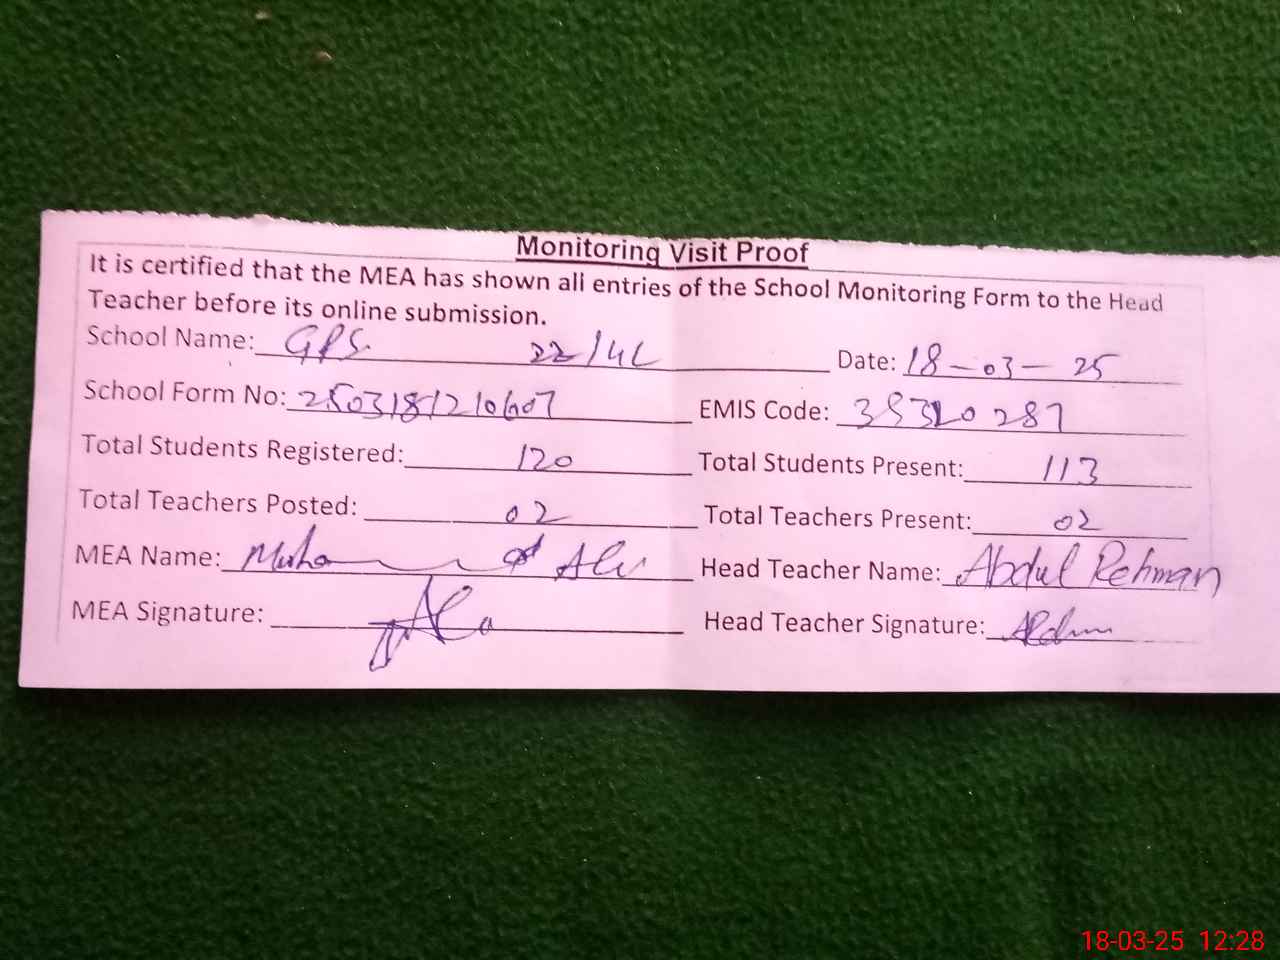 Monitoring Visit Proof
It is certified that the MEA has shown all entries of the School Monitoring Form to the Head
Teacher before its online submission.
School Name: GPS 22/4L Date: 18-03-25
School Form No: 2503181210607 EMIS Code: 35320287
Total Students Registered: 120 Total Students Present: 113
Total Teachers Posted: 02 Total Teachers Present: 02
MEA Name: Muhammad Ali Head Teacher Name: Abdul Rehman
MEA Signature: Head Teacher Signature:
18-03-25 12:28